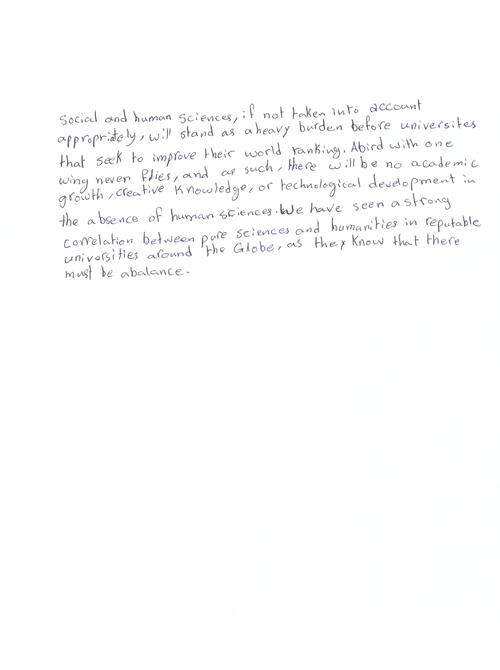 Social and human sciences, if not taken into account
appropriately, will stand as a heavy burden before universites
that seek to improve their world ranking. Abird with one
wing never flies, and as such, there will be no academic
growth, creative Knowledge, or technological development in
the absence of human sciences. We have seen a strong
correlation between pure sciences and humanities in reputable
universities around the Globe, as they know that there
must be abalance.